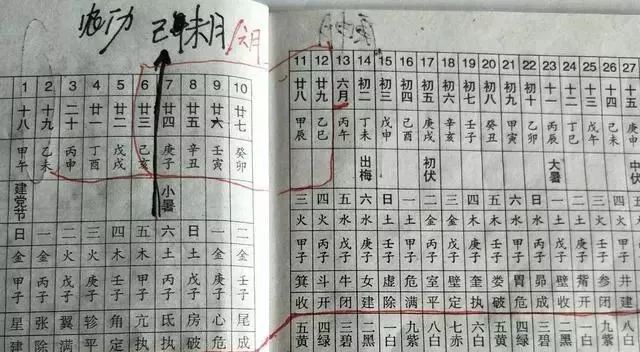 己未月 六月
1 2 3 4 5 6 7 8 9 10
十八 十九 二十 廿一 廿二 廿三 廿四 廿五 廿六 廿七
甲午 乙未 丙申 丁酉 戊戌 己亥 庚子 辛丑 壬寅 癸卯
建党节 小暑
日 一 二 三 四 五 六 日 一 二
金 金 火 火 木 木 土 土 金 金
甲子 丙子 戊子 庚子 壬子 甲子 丙子 戊子 庚子 壬子
星 张 翼 轸 角 亢 氐 房 心 尾
建 除 满 平 定 执 执 破 危 成
11 12 13 14 15 16 17 18 19 20 21 22 23 24 25 26 27
廿八 廿九 六月 初二 初三 初四 初五 初六 初七 初八 初九 初十 十一 十二 十三 十四 十五
甲辰 乙巳 丙午 丁未 戊申 己酉 庚戌 辛亥 壬子 癸丑 甲寅 乙卯 丙辰 丁巳 戊午 己未 庚申
出梅 初伏 大暑 中伏
三 四 五 六 日 一 二 三 四 五 六 日 一 二 三 四
火 火 水 水 土 土 金 金 木 木 水 水 土 土 火 火
甲子 丙子 戊子 庚子 壬子 甲子 丙子 戊子 庚子 壬子 甲子 丙子 戊子 庚子 壬子 甲子
箕 斗 牛 女 虚 危 室 壁 奎 娄 胃 昴 毕 觜 参 井
收 开 闭 建 除 满 平 定 执 破 危 成 收 开 闭 建
五黄 四绿 三碧 二黑 一白 九紫 八白 七赤 六白 五黄 四绿 三碧 二黑 一白 九紫 八白